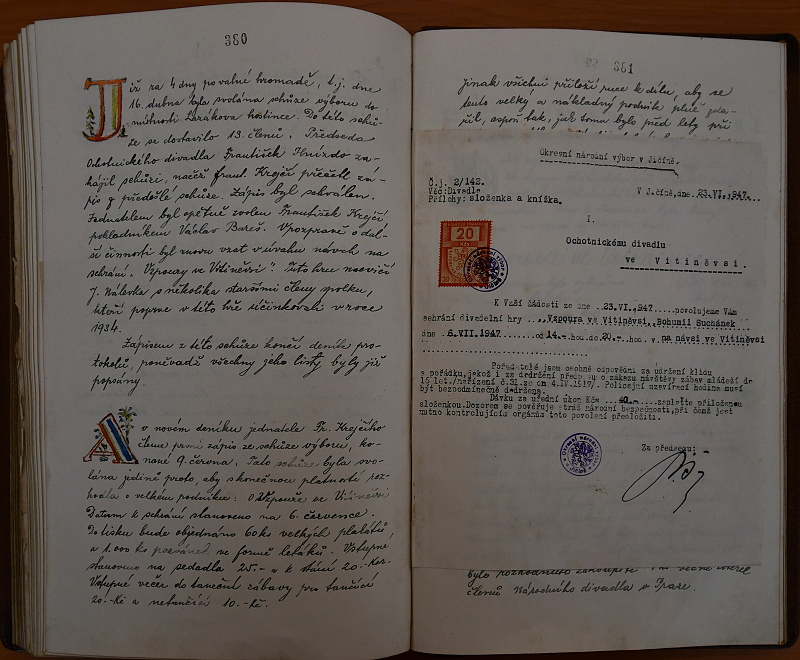 360
Již za 4 dny po valné hromadě, t. j. dne
16. dubna byla svolána schůze výboru do
místnosti Lazákova hostince. Do této schů-
ze se dostavilo 13 členů. Předseda
Ochotnického divadla František Hnízdo za-
hájil schůzi, načež Frant. Krejčí přečetl zá-
pis z předešlé schůze. Zápis byl schválen.
Jednatelem byl opětně zvolen František Krejčí
pokladníkem Václav Bareš. Vpozpravě o dal-
ší činnosti byl znovu vzat v úvahu návrh na
sehrání „Vzpoury ve Vitiněvsi". Tuto hru nacvičí
J. Nálevka s několika staršími členy spolku,
kteří poprve v této hře účinkovali v roce
1934.
Zápisem z této schůze končí deník pro-
tokolů, poněvadž všechny jeho listy byly již
popsány.
A v novém deníku jednatele Fr. Krejčího
čteme první zápis ze schůze výboru, ko-
nané 9. června. Tato schůze byla svo-
lána jedině proto, aby s konečnou platností roz-
hodla o velkém podniku: O Vzpouře ve Vitiněvsi
Datum k sehrání stanoveno na 6. července.
Do tisku bude objednáno 60 ks velkých plakátů,
a 1.000 ks pozvánek ve formě letáků. Vstupné
stanoveno na sedadla 25.- a k stání 20.-Kčs.
Vstupné večer do taneční zábavy pro tančící
20.-Kč a netančící 10.-Kč.
361
Jinak všichni přiloží ruce k dílu, aby se
tento velký a nákladný podnik plně zda-
řil, aspoň tak, jak tomu bylo před lety při
Okresní národní výbor v Jičíně.
Č.j. 2/142.
Věc: Divadlo
V Jičíně, dne 23.VI.1947.
Přílohy: složenka a knížka.
20
Kčs
I.
Ochotnickému divadlu
ve Vitiněvsi.
K Vaší žádosti ze dne 23.VI.1947 povolujeme Vám
sehrání divadelní hry „Vzpoura ve Vitiněvsi„Bohumil Suchánek
dne 6.VII.1947 od 14. hod. do 20. hod. v na návsi ve Vitiněvsi
Pořadatelé jsou osobně odpovědni za udržení klidu
a pořádku, jakož i za dodržení předpisu o zákazu návštěvy zábav mládeží do
16 let./nařízení č.31.zo dn 4.IV.1917/. Policejní uzavírací hodina musí
být bezpodmínečně dodržena.
Dávku za úřední úkon Kčs 40.- zaplaťte přiloženou
složenkou. Dozorem se pověřuje stráž národní bezpečnosti, při čemž jest
nutno kontrolujícím orgánům toto povolení předložiti.
Za předsedu:
bylo rozhodnuto zakoupiti
členů Národního divadla v Praze.